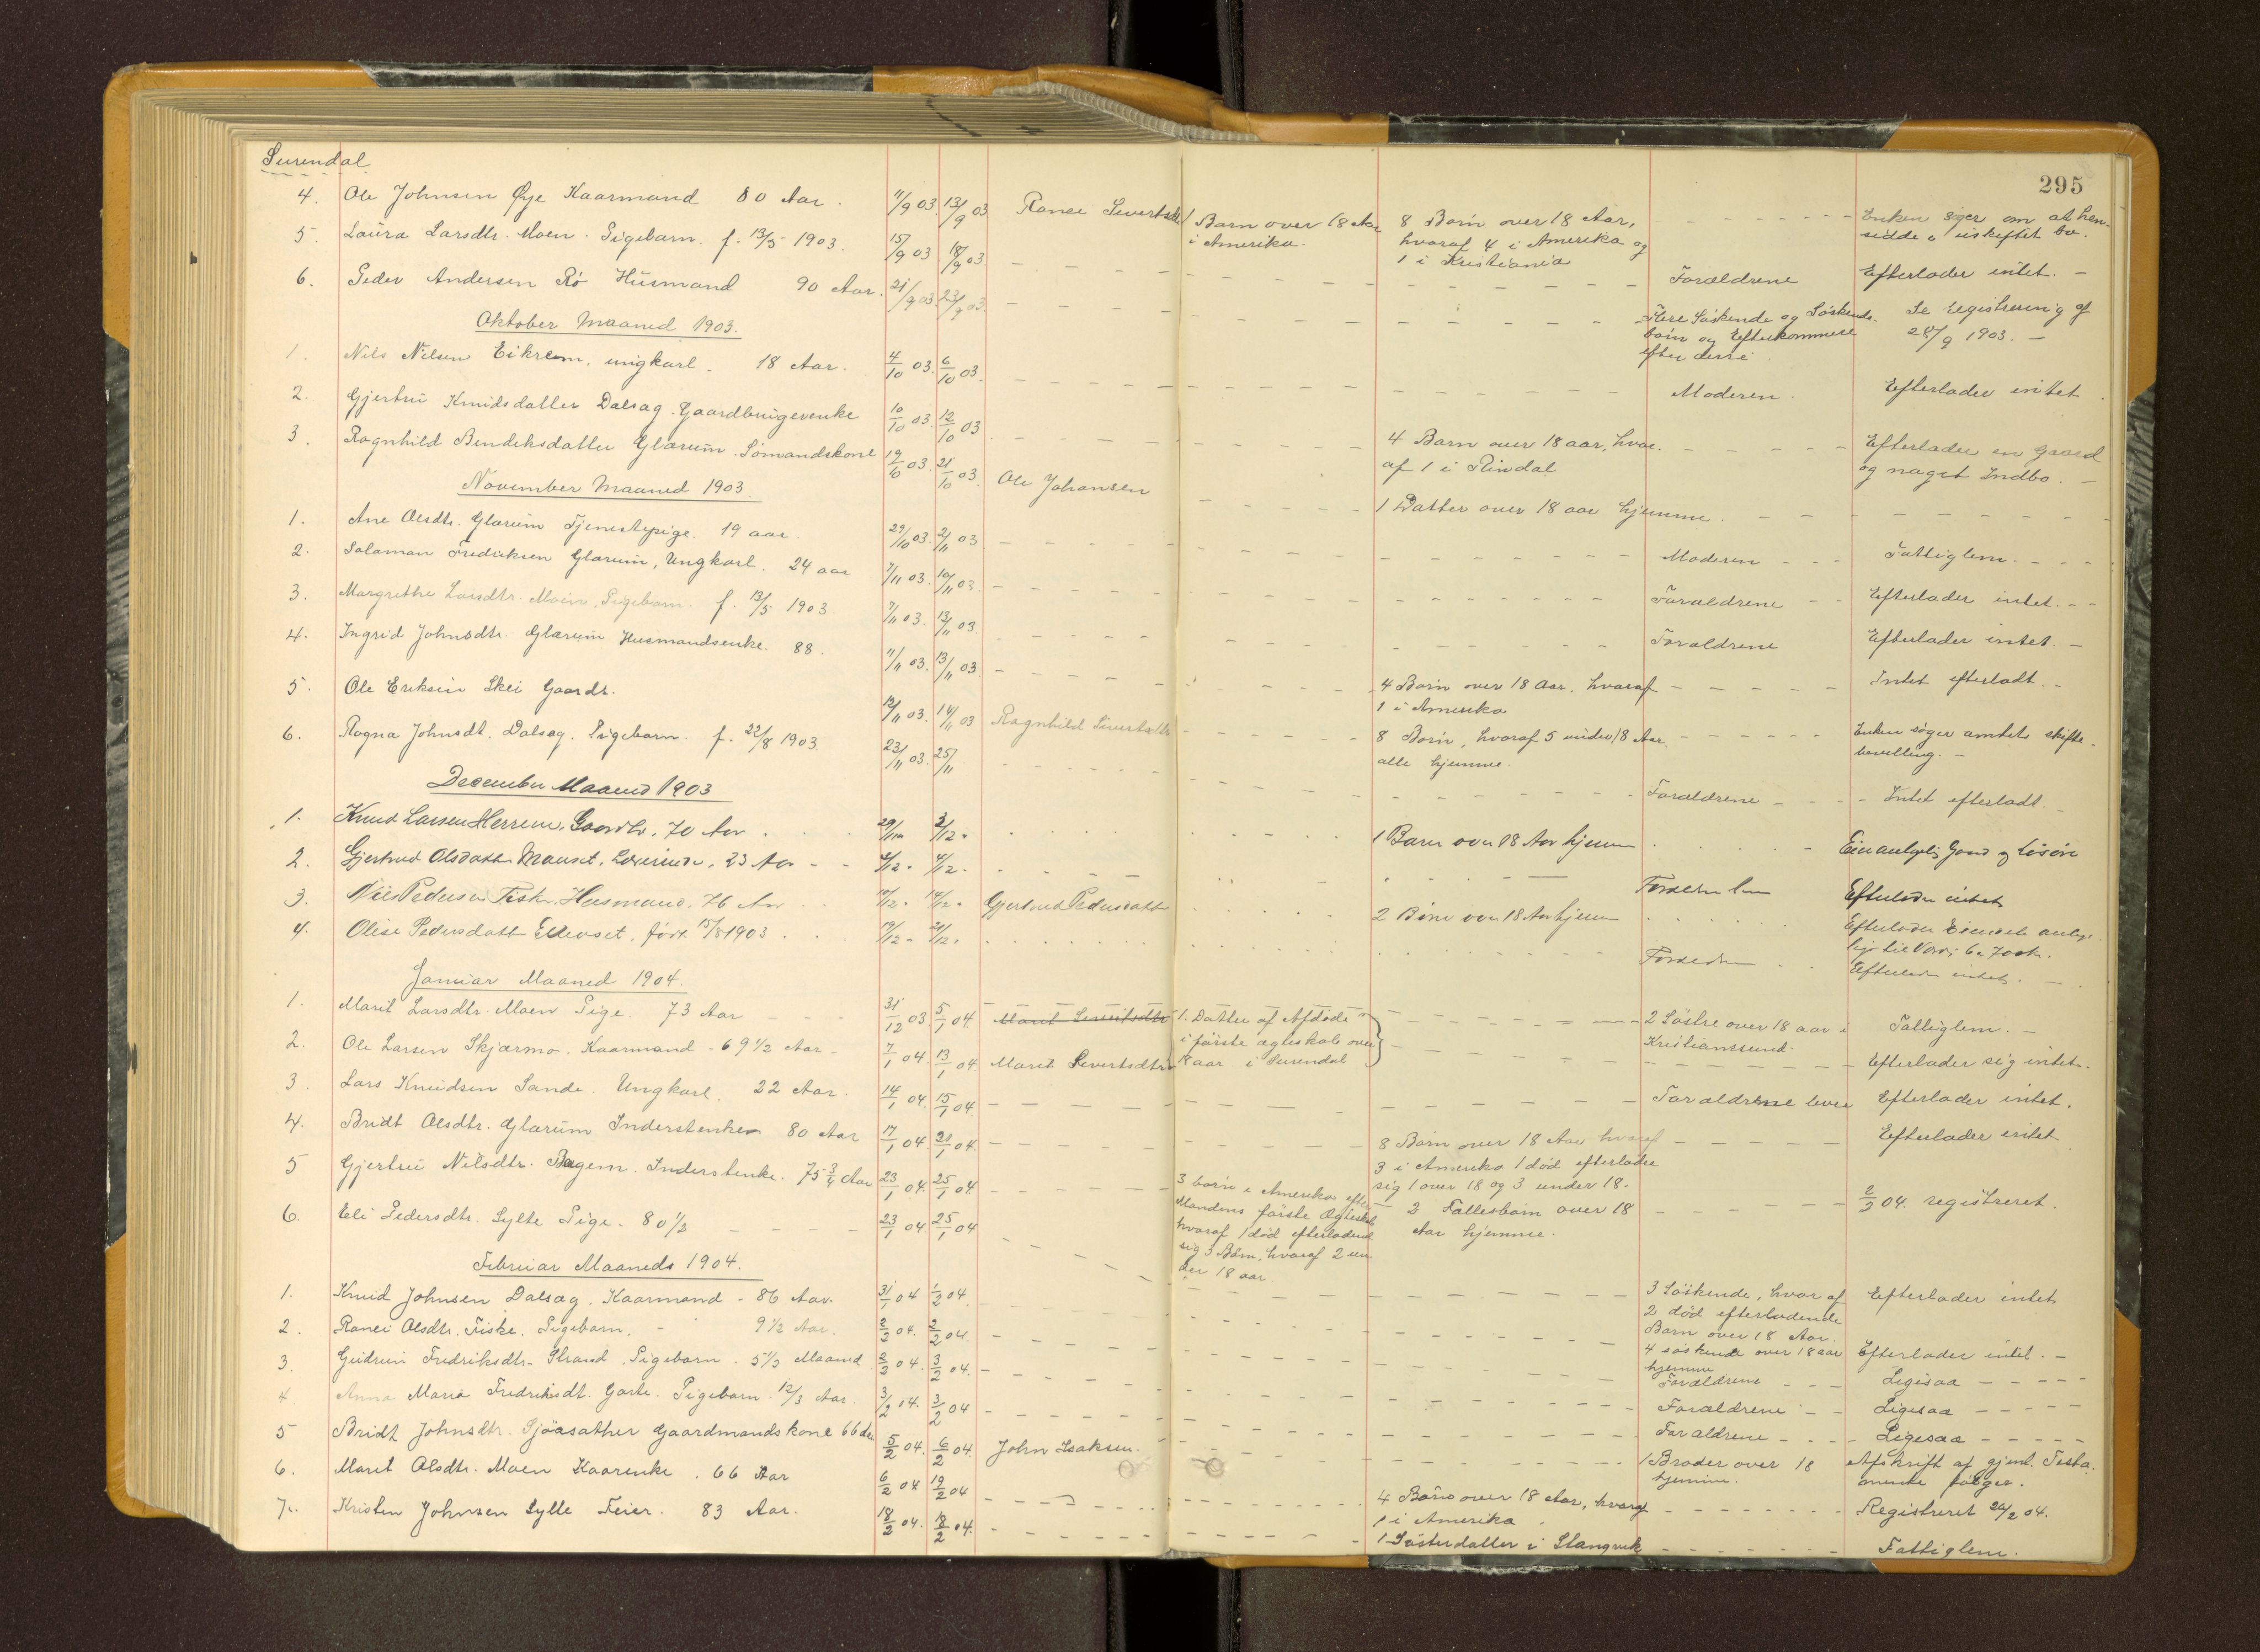 Surendal
295
4. Ole Johnsen Øye Kaarmand 80 Aar. 11/9 03. 13/9 03 Ranei Sivertsdtr 1 Barn over 18 Aar 8 Børn over 18 Aar, Enken siger om at hen-
i Amerika. hvoraf 4 i Amerika og sidde i uskiftet bo.
1 i Kristiania
5. Laura Larsdtr. Moen. Pigebarn. f. 13/5 1903. 15/9 03 18/9 03. Forældrene Efterlader intet. -
6. Peder Andersen Rø Husmand 90 Aar. 21/9 03. 23/9 03. Flere Søskende og Søskende- Se registrering af
børn og Efterkommere 28/9 1903. -
efter disse.
Oktober Maaned 1903.
1. Nils Nilsen Eikrem, ungkarl. 18 Aar. 4/10 03. 6/10 03. Moderen. Efterlader intet
2. Gjertru Knudsdatter Dalsag. Gaardbrugerenke 10/10 03. 12/10 03 4 Barn over 18 aar, hvor- Efterlader en gaard
af 1 i Rindal og noget Indbo. -
3. Ragnhild Bendiksdatter Glærum. Sømandskone 19/10 03. 21/10 03. Ole Johansen 1 Datter over 18 aar hjemme.
November Maaned 1903.
1. Ane Olsdtr. Glærum Tjenestepige. 19 aar. 29/10 03. 2/11 03 Moderen Fattiglem.
2. Salamon Fredriksen Glærum, Ungkarl. 24 aar 7/11 03. 10/11 03. Forældrene Efterlader intet. - -
3. Margrethe Larsdtr. Moen. Pigebarn. f. 13/5 1903. 7/11 03. 13/11 03. Forældrene Efterlader intet. -
4. Ingrid Johnsdtr. Glærum Husmandsenke. 88. 11/11 03. 13/11 03 4 Børn over 18 Aar, hvoraf Intet efterladt. -
1 i Amerika
5. Ole Eriksen Skei Gaardb. 12/11 03. 14/11 03 Ragnhild Sivertsdtr 8 Børn, hvoraf 5 under 18 Aar. Enken søger amtets skifte-
alle hjemme. bevilling. -
6. Ragna Johnsdt. Dalsag. Pigebarn. f. 22/8 1903. 23/11 03. 25/11 Forældrene - Intet efterladt. -
December Maaned 1903
1. Knud Larsen Herrem, Gaardb. 70 Aar. 29/11 3/12 1 Barn over 18 Aar hjemme
2. Gjertrud Olsdatter Mauset, 23 Aar Efterlader intet
3. Nils Pedersen Fiske. Husmand. 76 Aar Gjertrud Pedersdatter 2 Børn over 18 Aar hjemme Efterlader
4. Olise Pedersdatter født 15/8 1903. Forældrene Efterlader intet.
Januar Maaned 1904.
1. Marit Larsdtr. Moen Pige. 73 Aar 31/12 03. 5/1 04. 2 Søstre over 18 aar i Fattiglem. -
Kristianssund.
2. Ole Larsen Skjærmo. Kaarmand - 69 1/2 Aar - 7/1 04. 13/1 04. Marit Sivertsdtr 1. Datter af Afdøde Efterlader sig intet.
i første ægteskab over
18 aar i Surendal
3. Lars Knudsen Sande. Ungkarl. 22 Aar. 14/1 04. 15/1 04. Forældrene lever Efterlader intet.
4. Bridt Olsdtr. Glærum Inderstenke 80 Aar 17/1 04 21/1 04. 8 Børn over 18 Aar hvoraf Efterlader intet
3 i Amerika 1 død efterlader
sig 1 over 18 og 3 under 18.
5 Gjertru Nilsdtr. Bøgem. Inderstenke. 75 3/4 Aar 23/1 04. 25/1 04. 3 børn i Amerika efter 2 Fællesbørn over 18 2/2 04. registreret.
Mandens første Ægteskab Aar hjemme.
hvoraf 1 død efterladende
sig 3 Børn, hvoraf 2 un-
der 18 aar.
6. Eli Pedersdtr. Sylte Pige. 80 1/2 23/1 04. 25/1 04 3 Søskende, hvoraf Efterlader intet
2 død efterladende
Børn over 18 Aar.
Februar Maaneds 1904.
1. Knud Johnsen Dalsag, Kaarmand - 86 Aar. 31/1 04 1/2 04. 4 søskende over 18 aar Efterlader intet. -
hjemme
2. Ranei Olsdtr. Fiske. Pigebarn. 9 1/2 Aar. 2/2 04. 2/2 04. Forældrene Ligesaa
3. Gudrun Fredriksdtr. Strand. Pigebarn. 5 1/2 Maaned 2/2 04. 3/2 04. Forældrene Ligesaa
4. Anna Maria Fredriksdt. Garte. Pigebarn. 1 2/3 Aar. 3/2 04. 3/2 04 Forældrene Ligesaa
5 Bridt Johnsdtr. Sjøasæther Gaardmandskone 66 Aar 5/2 04. 6/2 04 John Isaksen. 1 Broder over 18 Afskrift af gjml. Testa-
hjemme. mente følger.
6. Marit Olsdtr. Moen Kaarenke. 66 Aar 6/2 04 19/2 04 4 Børn over 18 Aar, hvoraf Registreret 24/2 04.
1 i Amerika
7. Kristen Johnsen Sylte Feier. 83 Aar. 18/2 04. 18/2 04. 1 Søsterdatter i Stangvik Fattiglem.